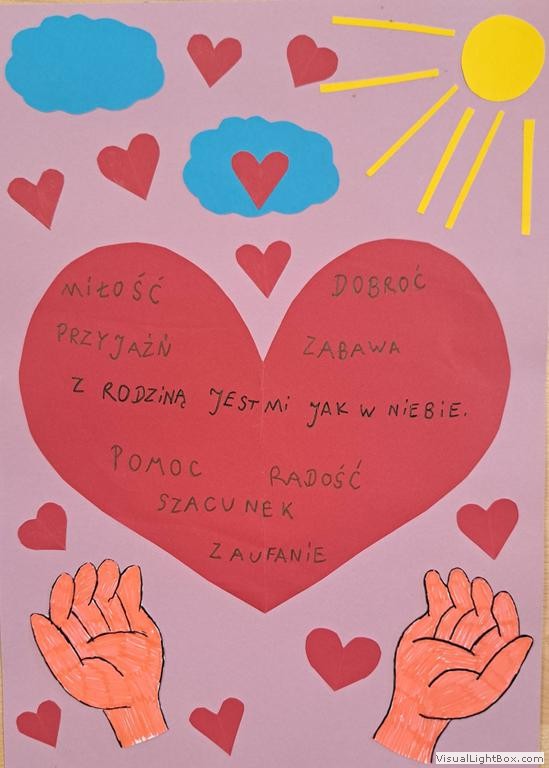 MIŁOŚĆ DOBROĆ
PRZYJAŹŃ ZABAWA
Z RODZINĄ JEST MI JAK W NIEBIE.
POMOC RADOŚĆ
SZACUNEK
ZAUFANIE
VisualLightBox.com